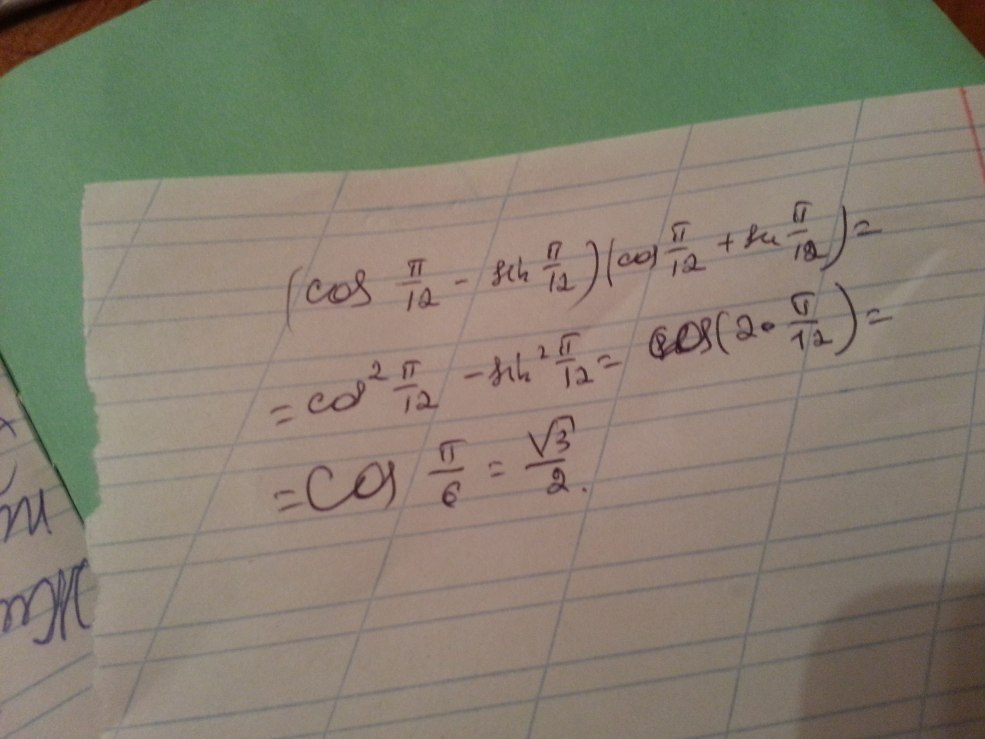 (cos π/12 - sin π/12)(cos π/12 + sin π/12) =
= cos² π/12 - sin² π/12 = cos(2 · π/12) =
= cos π/6 = √3/2.